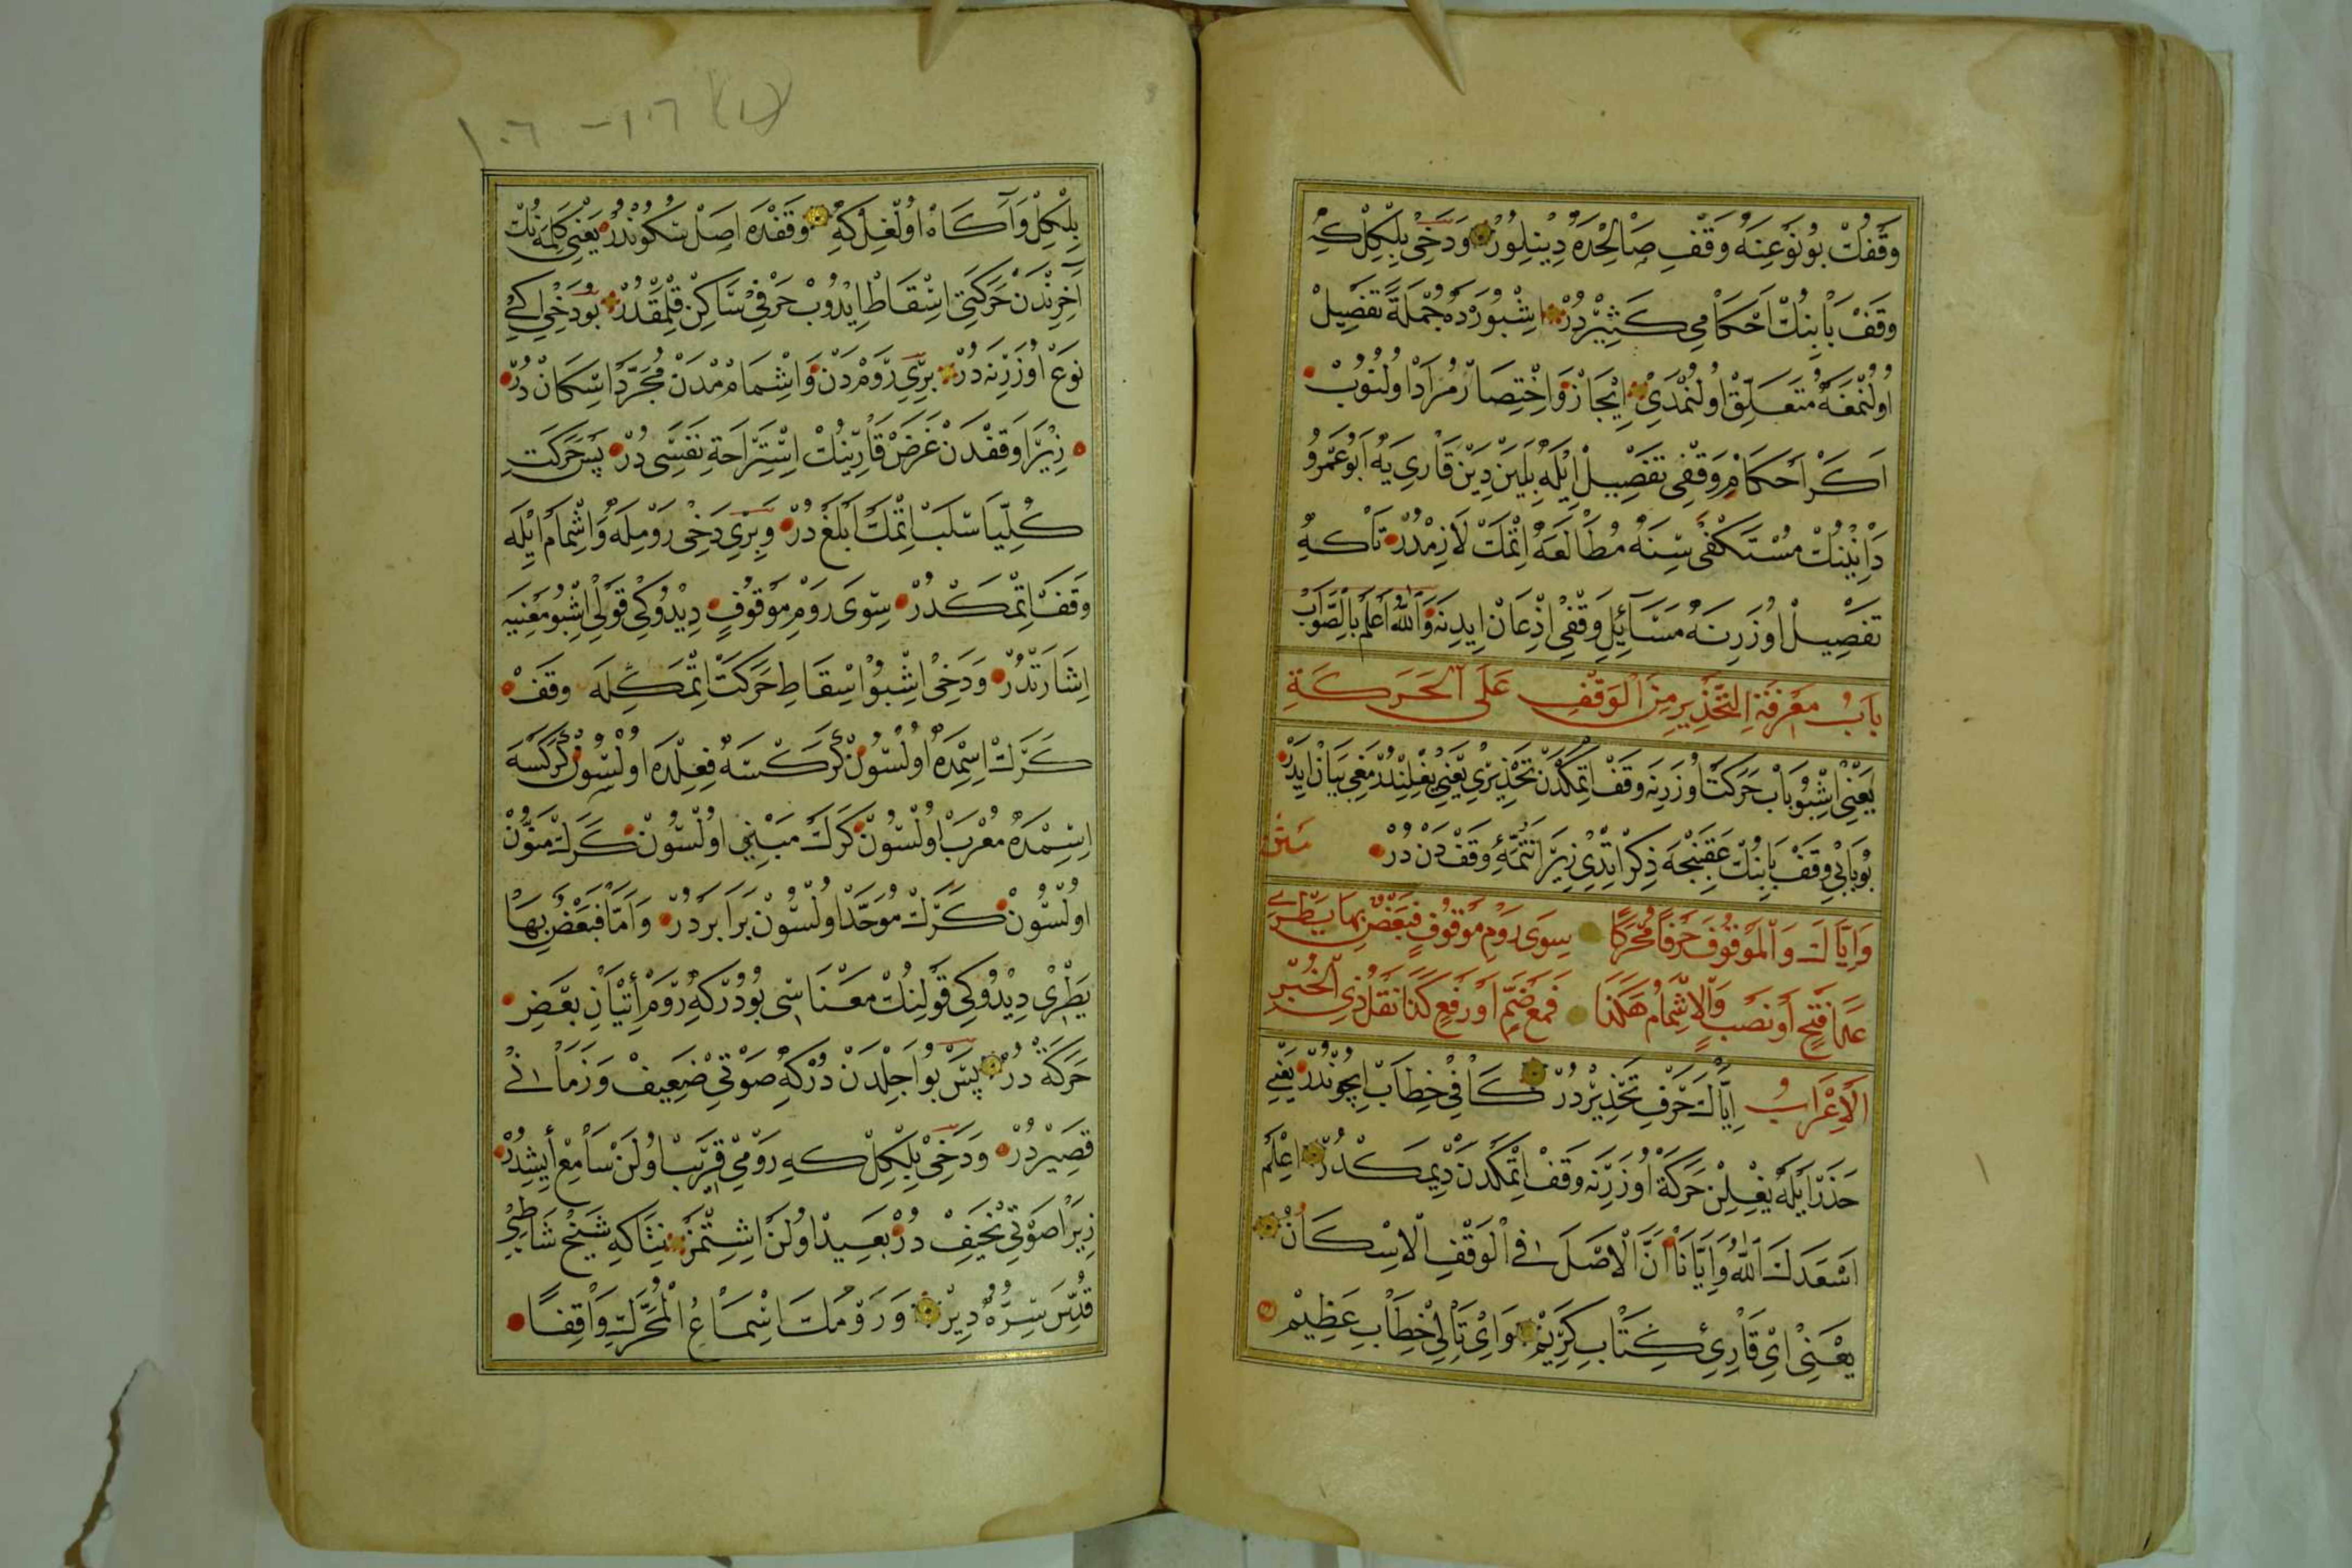 وَقْفُكْ بُو نَوْعِنَهْ وَقْفِ صَالِحْدَه دِينِلُورْ وَدَخِي بِلْكِلْ كِهْ
وَقَفْ بَابِنِكْ اَحْكَامِي كَثِيرْدُرْ اِشْبُورَدَه جُمْلَةً تَفْصِيلْ
اُولُنْمَغَه مُتَعَلِّقْ اُولُنْمَدِي اِيجَازْ وَاخْتِصَارْ مُرَادْ اُولُنُوبْ
اَكَرْ اَحْكَامِ وَقْفِي تَفْصِيلْ اِيلَه بِلَيِنْ دِيَنْ قَارِي يَه اَبُو عَمْرُو
دَانِينُكْ مُسْتَكْفَى سِنَه مُطَالَعَه اِتْمَكْ لَازِمْدُرْ تَا كِه
تَفْصِيلْ اُوزَرِنَه مَسَائِلِ وَقْفِي اِذْعَانْ اِيدِنَه وَاللهُ اَعْلَمُ بِالصَّوَابْ
بَابُ مَعْرِفَةِ التَّحْذِيرِ مِنَ الْوَقْفِ عَلَى الْحَرَكَةِ
يَعْنِي اِشْبُو بَابْ حَرَكَتْ اُوزَرِنَه وَقَفْ اِتْمَكْدَنْ تَحْذِيرِي يَعْنِي يِغْلِنْدُرْمَغِي بَيَانْ اِيدَرْ
بُو بَابِي وَقَفْ بَابِنِكْ عَقِبِنْجَه ذِكْرْ اِتْدِي زِيرَا تَتِمَّهءِ وَقَفْدَنْ دُرْ مَتْن
وَاِيَّاكَ وَالْمَوْقُوفَ حَرْفًا مُحَرَّكًا سِوَى رَوْمِ مَوْقُوفٍ فَبَعْضٌ بِهَا يَطْرِي
عَدَا فَتْحٍ اَوْ نَصْبٍ وَالْاِشْمَامُ هَكَذَا فَمَعْ ضَمٍّ اَوْ رَفْعٍ كَذَا نَقْلُ ذِي الْخُبْرِ
اَلْاِعْرَابُ اِيَّاكَ حَرْفِ تَحْذِيرْدُرْ كَافِي خِطَابْ اِيچُونْدُرْ يَعْنِي
حَذَرْ اَيْلَه يِغْلِنْ حَرَكَةْ اُوزَرِنَه وَقَفْ اِتْمَكْدَنْ دِيمَكْدُرْ اِعْلَمْ
اَسْعَدَكَ اللهُ وَاِيَّانَا اَنَّ الْاَصْلَ فِي الْوَقْفِ الْاِسْكَانُ
يَعْنِي اَيْ قَارِئِ كِتَابِ كَرِيمْ وَاَيْ تَالِي خِطَابِ عَظِيمْ
١٠٦ - ١٠٦
بِلْكِلْ وَآكَاهْ اُولْغِلْ كِه وَقَفْدَه اَصِلْ سُكُونْدُرْ يَعْنِي كَلِمَه نُكْ
آخِرِنْدَنْ حَرَكَتِي اِسْقَاطْ اِيدُوبْ حَرْفِي سَاكِنْ قِلْمَقْدُرْ بُو دَخِي اِكِي
نَوْعْ اُوزَرِنَه دُرْ بِرِي رَوْمْدَنْ وَاِشْمَامْدَنْ مُجَرَّدْ اِسْكَانْ دُرْ
زِيرَا وَقَفْدَنْ غَرَضْ قَارِينُكْ اِسْتِرَاحَةِ نَفَسِي دُرْ پَسْ حَرَكَتِ
كُلِّيًا سَلَبْ اِتْمَكْ اَبْلَغْ دُرْ وَبِرِي دَخِي رَوْمِلَه وَاِشْمَامْ اِيلَه
وَقَفْ اِتْمَكْدُرْ سِوَى رَوْمِ مَوْقُوفٍ دِيدُوكِي قَوْلِي اِشْبُو مَعْنِيَه
اِشَارَتْدُرْ وَدَخِي اِشْبُو اِسْقَاطِ حَرَكَتْ اِتْمَكِلَه وَقَفْ
كَرَكْ اِسِمْدَه اُولْسُونْ كَرَكْسَه فِعِلْدَه اُولْسُونْ كَرَكْسَه
اِسِمْدَه مُعْرَبْ اُولْسُونْ كَرَكْ مَبْنِي اُولْسُونْ كَرَكْ مُنَوَّنْ
اُولْسُونْ كَرَكْ مُوَحَّدْ اُولْسُونْ بَرَابَرْدُرْ وَاَمَّا فَبَعْضٌ بِهَا
يَطْرِي دِيدُوكِي قَوْلِنُكْ مَعْنَاسِي بُودُرْكِه رَوْمْ اِتْيَانِ بَعْضِ
حَرَكَةْ دُرْ پَسْ بُو اَجِلْدَنْ دُرْكِه صَوْتِي ضَعِيفْ وَزَمَانِي
قَصِيرْدُرْ وَدَخِي بِلْكِلْ كِه رَوْمِي قَرِيبْ اُولَنْ سَامِعْ اِيشِدُرْ
زِيرَا صَوْتِي خَفِيفْ دُرْ بَعِيدْ اُولَنْ اِشِتْمَزْ نِتَاكِه شَيْخْ شَاطِبِي
قُدِّسَ سِرُّهُ دِيرْ وَرَوْمُكَ اِسْمَاعُ الْمُحَرَّكِ وَاقِفًا